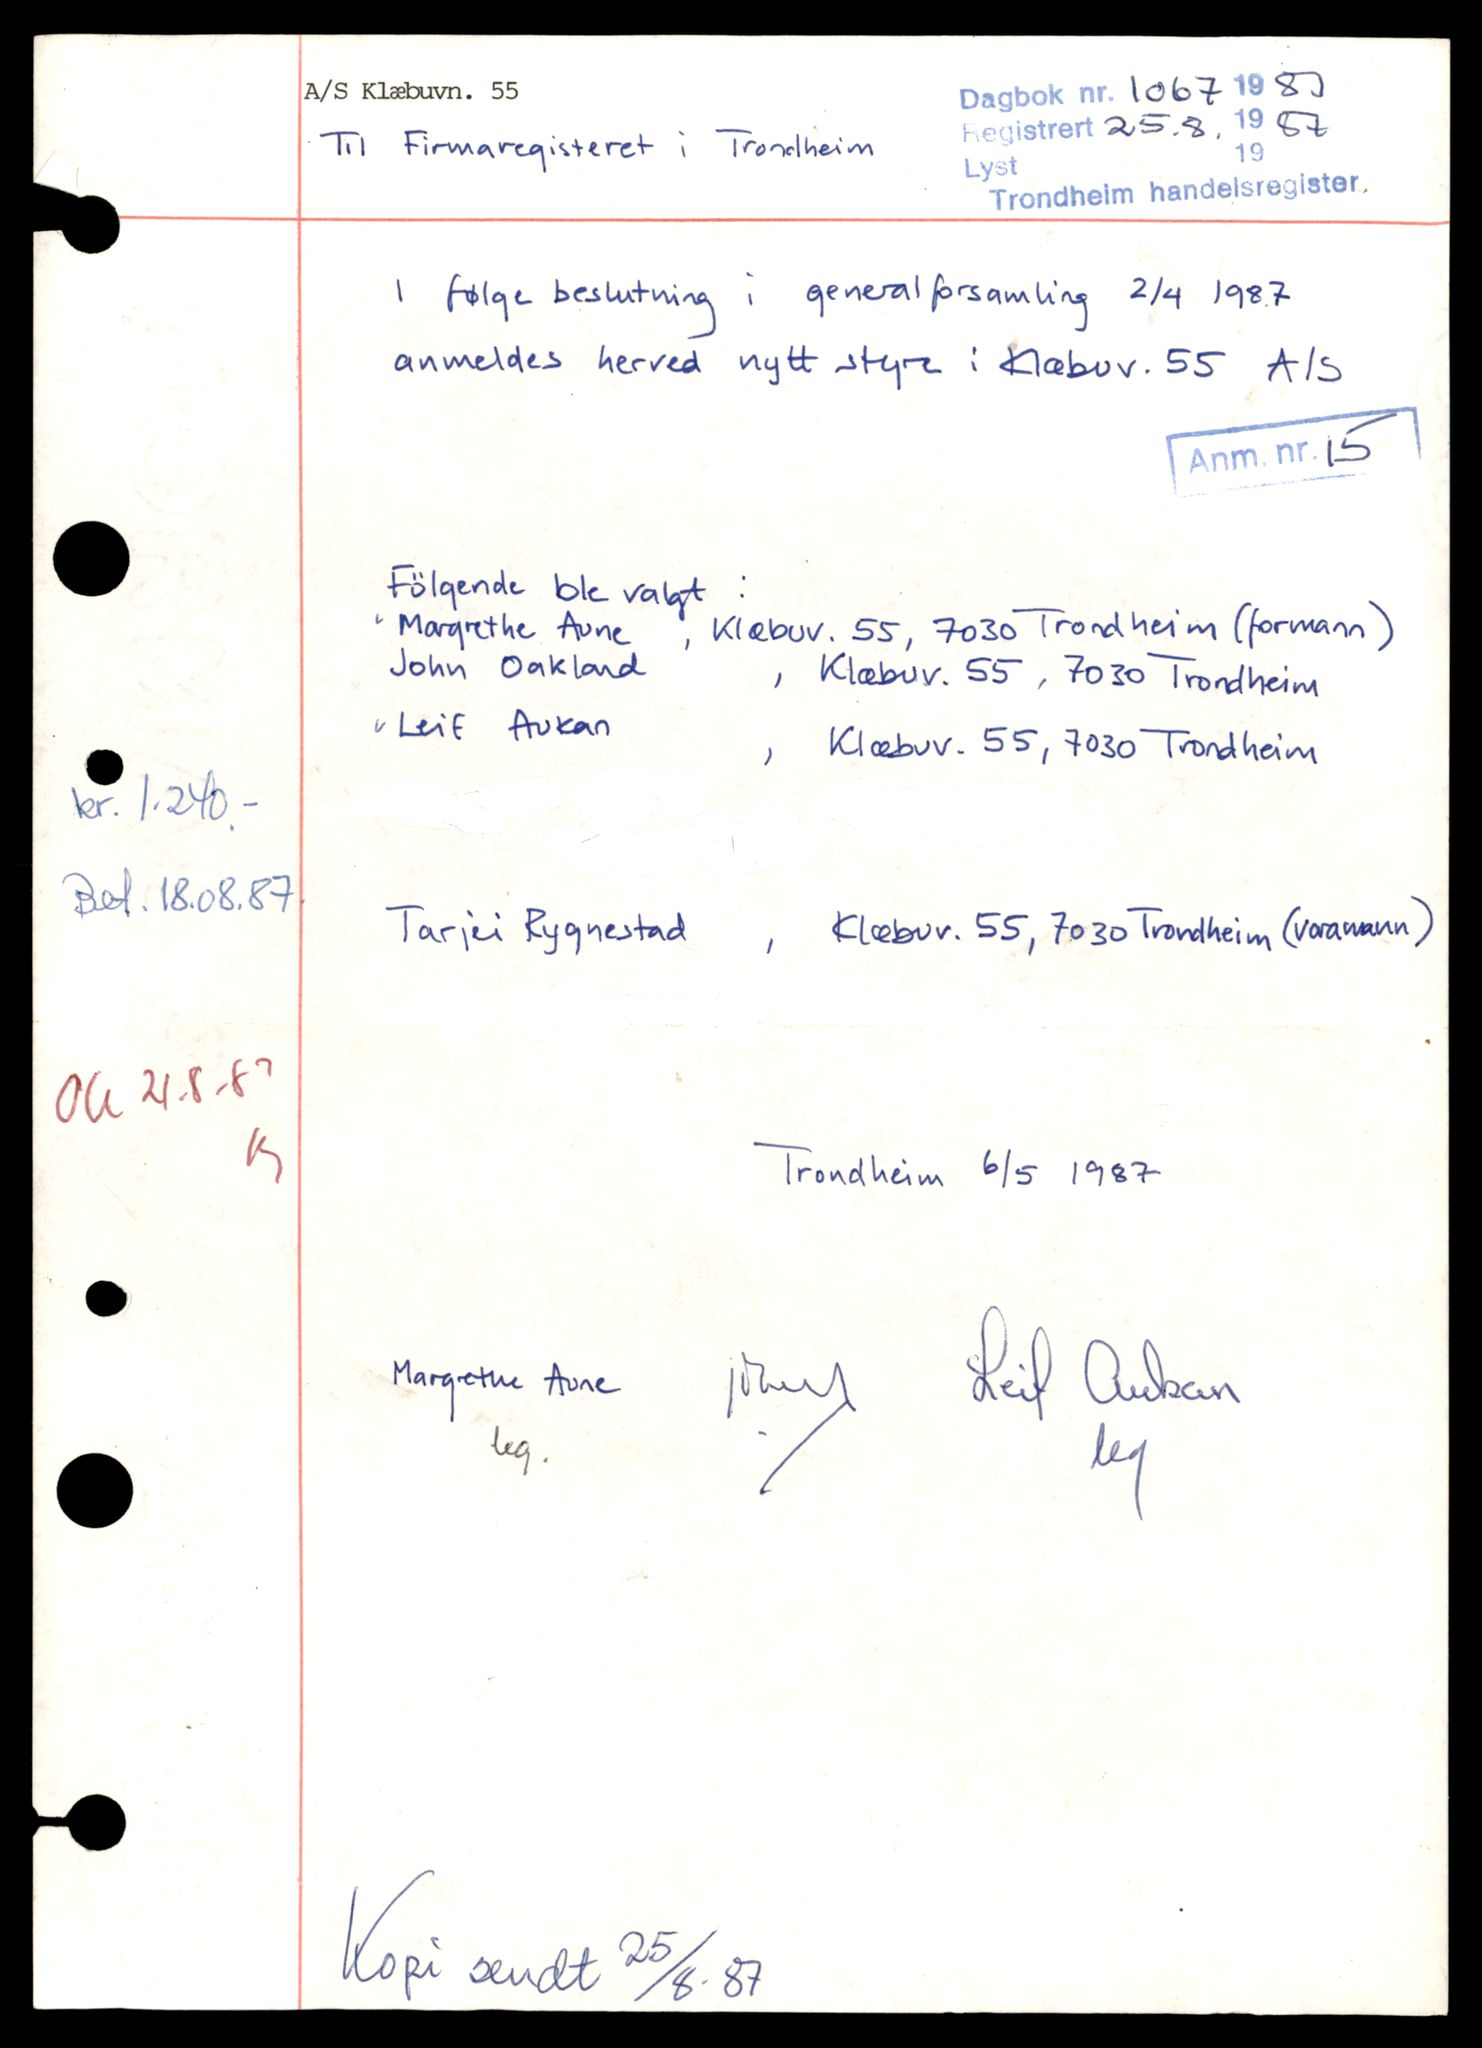 A/S Klæbuvn. 55
Til Firmaregisteret i Trondheim
Dagbok nr. 1067 1987
Registrert 25.8. 1987
Lyst 19
Trondheim handelsregister.
I følge beslutning i generalforsamling 2/4 1987
anmeldes herved nytt styre i Klæbuv. 55 A/S
Anm. nr. 15
Fölgende ble valgt :
Margrethe Aune , Klæbuv. 55, 7030 Trondheim (formann)
John Oakland , Klæbuv. 55, 7030 Trondheim
Leif Aukan , Klæbuv. 55, 7030 Trondheim
kr. 1.240.-
Bet. 18.08.87.
Tarjei Rygnestad , Klæbuv. 55, 7030 Trondheim (varamann)
Ok 21.8.87
Trondheim 6/5 1987
Margrethe Aune Leif Aukan
leg. leg
Kopi sendt 25/8-87